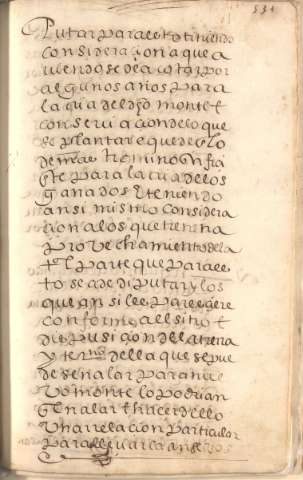 534
Putar para este titulo
consideracion a que a
viendose de acotar por
algunos años para
la guarda del dho monte e
conservacion de lo que
se plantare quede lo
demas termino sufi
çte para la cria de los
ganados e teniendo
ansi mismo considera
cion a los que tienen a
probechamiento de la
tal parte que para es
to se a de diputar y los
que ansi les pareçiere
conforme al sitio e
dispusiçion de la tierra
y terno della que se pue
de señalar para nue
vo monte lo podran
señalar e haçer dello
una relacion particular
para lleuar a